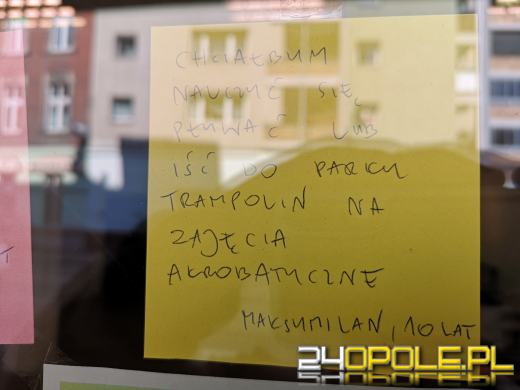 CHCIAŁBYM
NAUCZYĆ SIĘ
PŁYWAĆ LUB
IŚĆ DO PARKU
TRAMPOLIN NA
ZAJĘCIA
AKROBATYCZNE
MAKSYMILAN, 10 LAT
24OPOLE.PL